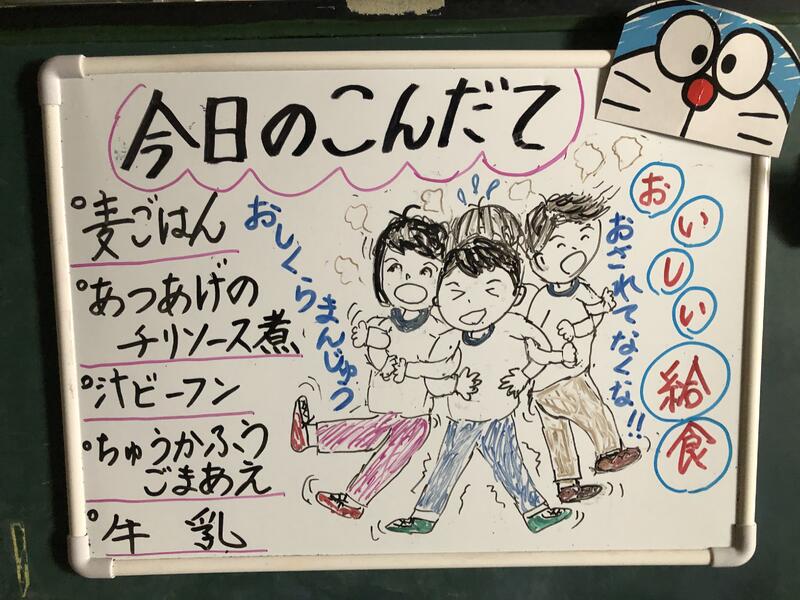 今日のこんだて
麦ごはん
あつあげの
チリソース煮
汁ビーフン
ちゅうかふう
ごまあえ
牛 乳
おしくらまんじゅう
おされてなくな!!
おいしい給食